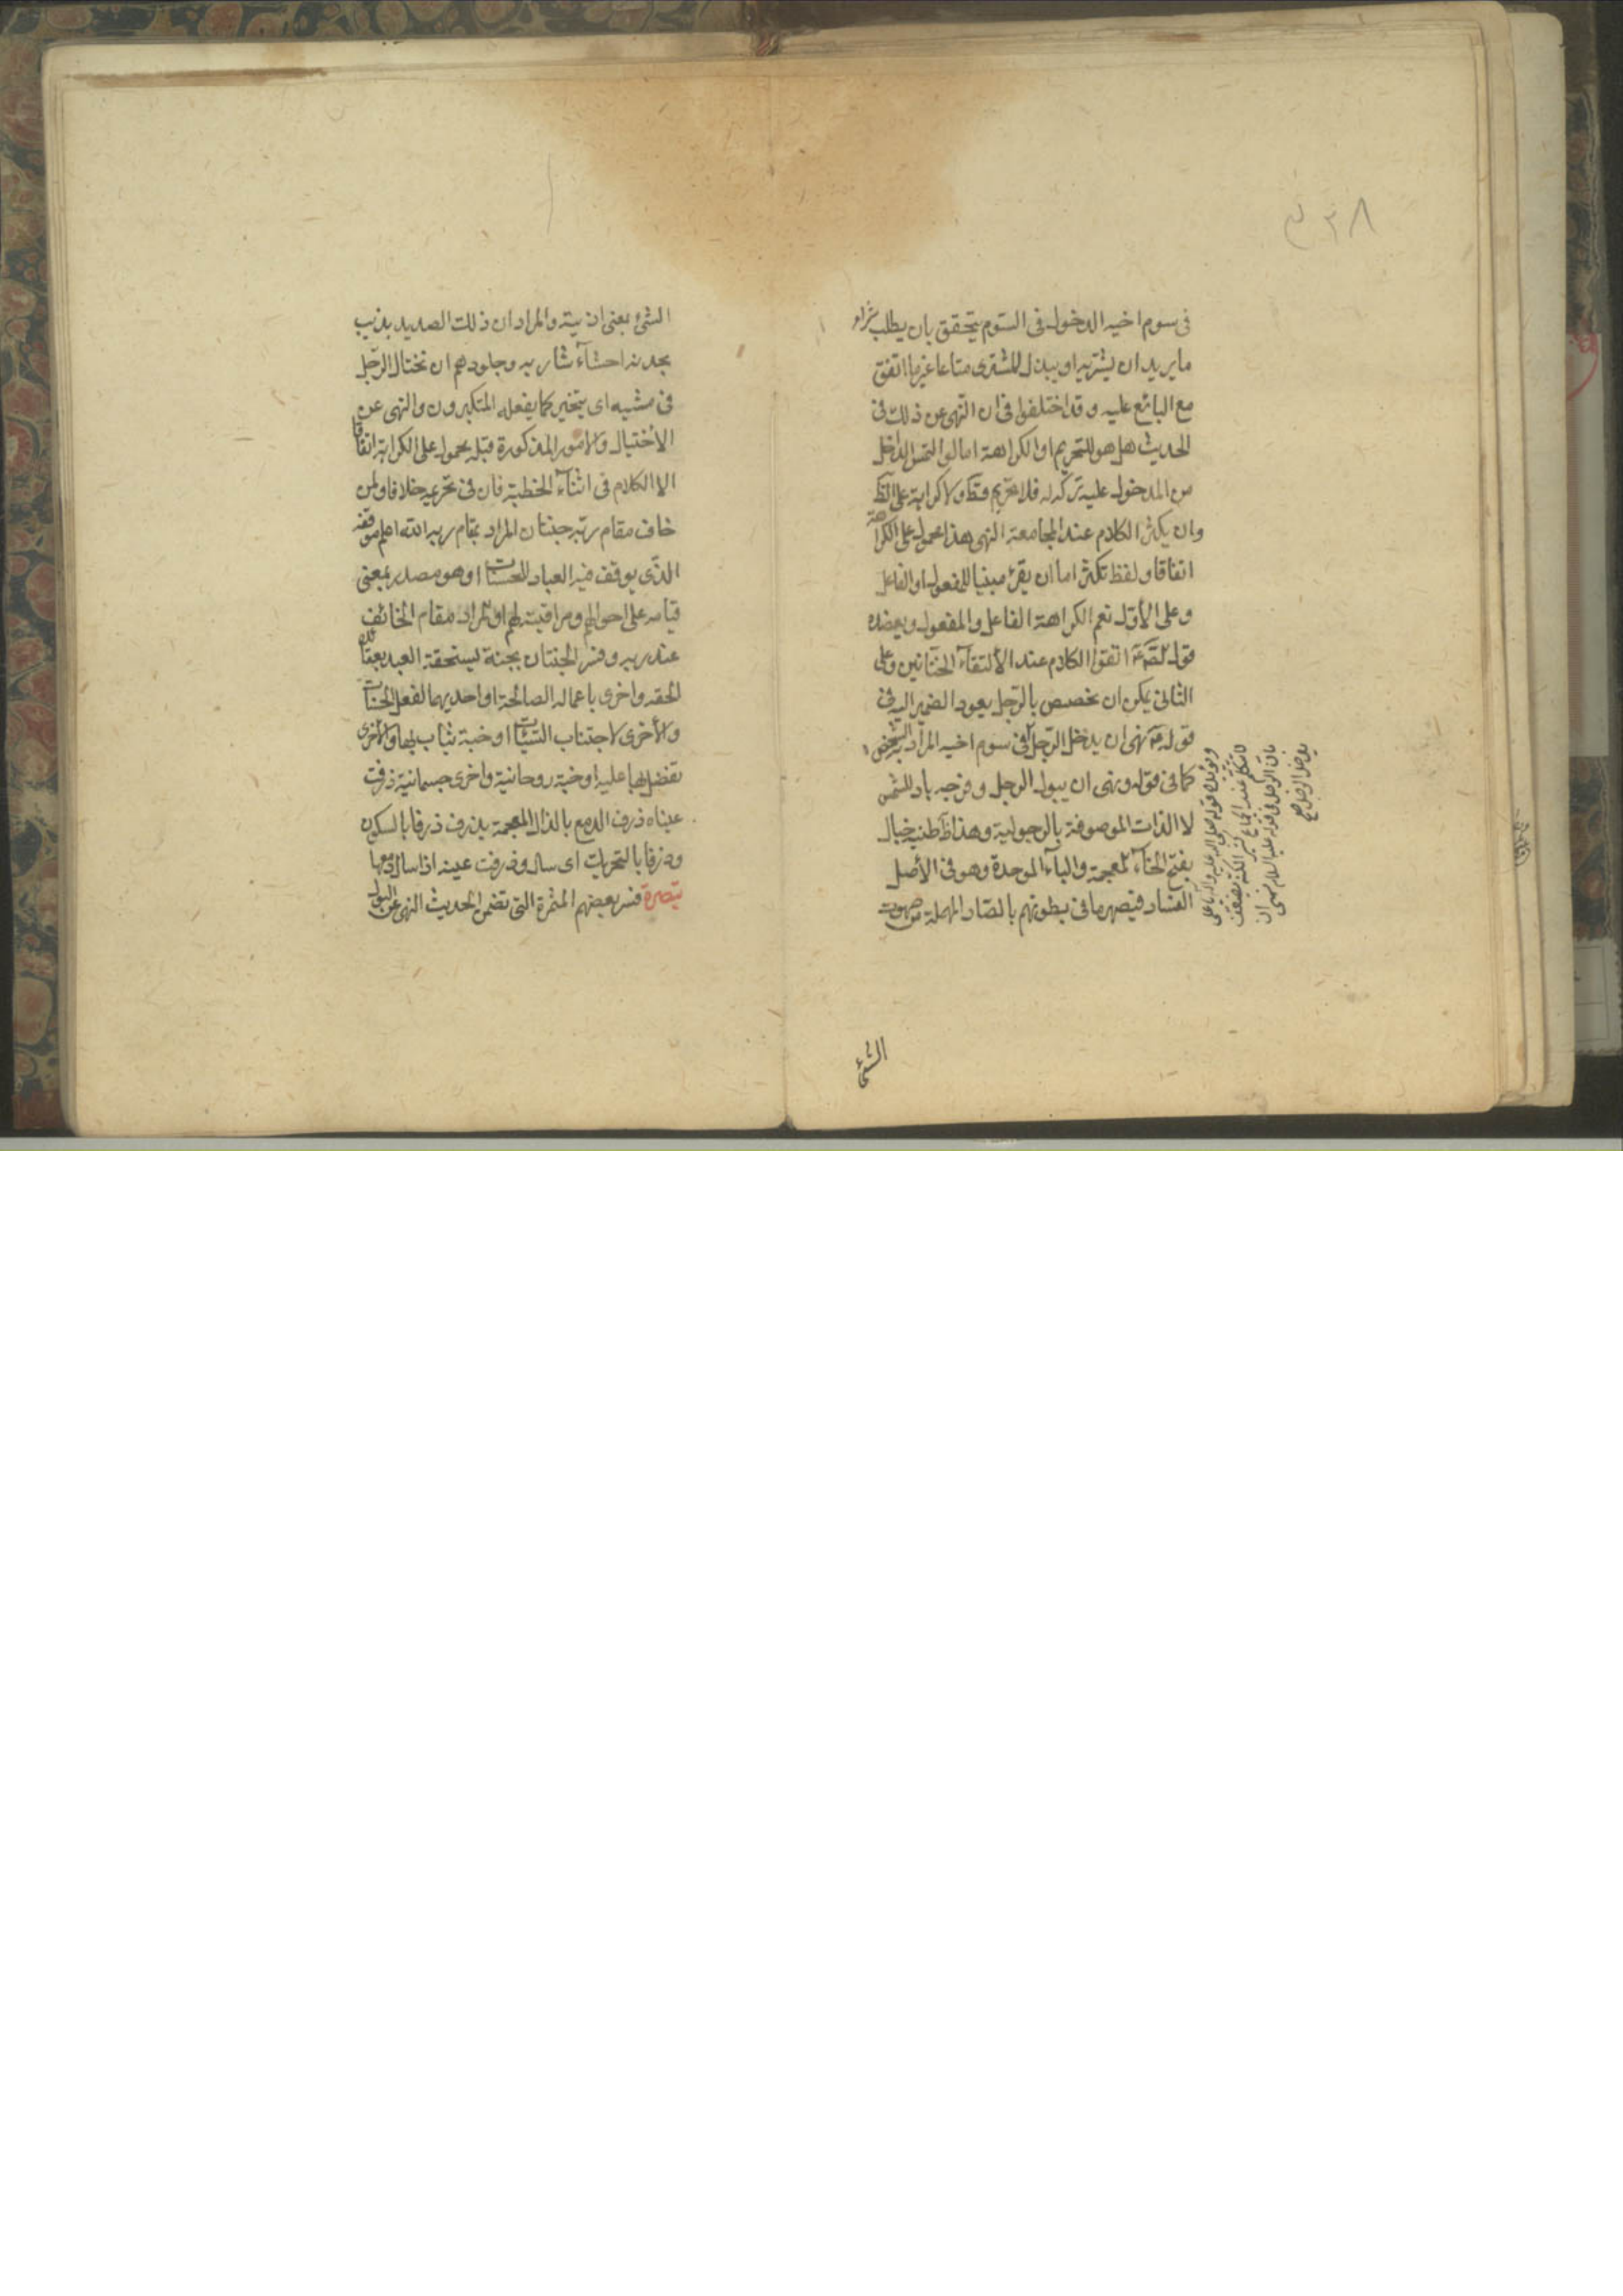 ٣٨
فى سوم اخيه الدخول فى السّوم يتحقق بان يطلب شراء
ما يريد ان يشتريه او يبذل للمشترى متاعا غير ما اتفق
مع البائع عليه و قد اختلفوا فى ان النّهى عن ذلك فى
الحديث هل هو للتحريم او الكراهة اما لو التمس الداخل
من المدخول عليه تركه له فلا تحريم قطعا ولا كراهة على
وان يكثر الكلام عند المجامعة النهى هذا محمول على الكراهة
اتفاقا و لفظ تكثر اما ان يقرء مبنيا للمفعول او الفاعل
و على الأوّل تعم الكراهة الفاعل و المفعول و يعضده
قوله اتقوا الكلام عند الألتقاء الختانين و على
الثانى يمكن ان تخصص بالرّجل بعود الضمير اليه فى
قوله نهى ان يدخل الرّجل فى سوم اخيه المراد به الشخص
كما فى قوله و نهى ان يبول الرجل و فرجه باد للشمس
لا الذات الموصوفة بالرجولية و هذا طنية خبال
بفتح الخاء المعجمة و الباء الموحدة و هو فى الأصل
الفساد فيصهر ما فى بطونهم بالصّاد المهملة من صهرت
الشئ
الشئ بمعنى اذبيته والمراد ان ذلك الصديد يذيب
بحدته احشاء شاربيه و جلودهم ان تختال الرّجل
فى مشيه اى يتبختر كما يفعله المتكبرون والنهى عن
الأختيال والامور المذكورة قبله محمول على الكراهة اتفاقا
الا الكلام فى اثناء الخطبة فان فى تحريمه خلافا ولمن
خاف مقام ربّه جنتان المراد بمقام ربه الله اعلم موقفه
الذّى يوقف فيه العباد للحسنات او هو مصدر بمعنى
قيامه على احوالهم و مراقبته لهم او المراد مقام الخائف
عند ربه و فسر الجنتان بجنة يستحقه العبد بعقائده
الحقه و اخرى باعماله الصالحة او احديهما لفعل الحسنات
و الأخرى لاجتناب السّيئات او جنة يثاب بها والأخرى
تفضل بها عليه او جنة روحانية واخرى جسمانية ذرفت
عيناه ذرف الدمع بالذال المعجمة يذرف ذرفا بالسكون
وذرفا بالتحريك اى سال و ذرفت عينه اذا سال دمعها
تبصرة فسر بعضهم المثمرة التى تضمن الحديث النهى عن البول